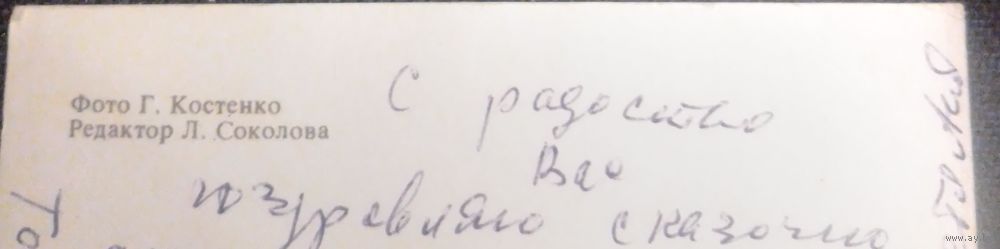 Фото Г. Костенко
Редактор Л. Соколова
С радостью
Вас
поздравляю сказочно
www.ay.by